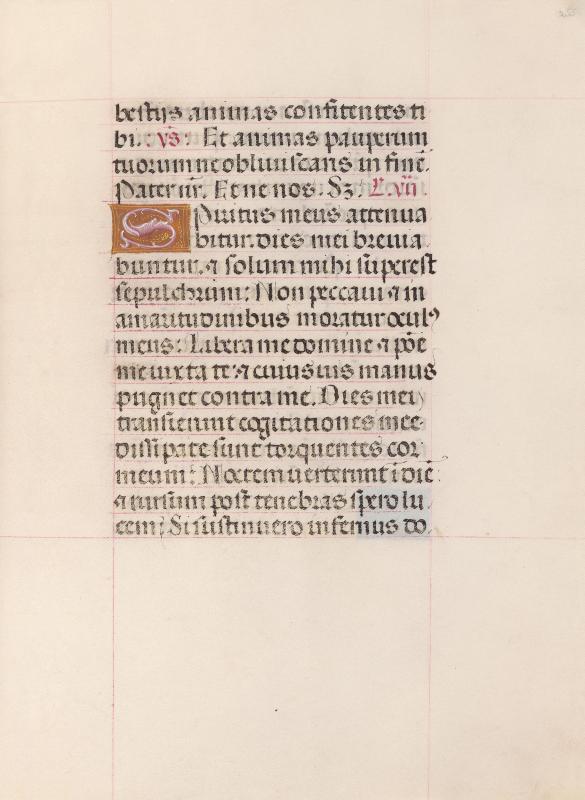 bestijs animas confitentes ti
bi. v̄s: Et animas pauperum
tuorum ne obliuiscaris in finē.
Pater nr̄. Et ne nos. Sz. L. vii
Spiritus meus attenua
bitur. dies mei breuia
buntur. ⁊ solum mihi superest
sepulchrum: Non peccaui ⁊ in
amaritudinibus moratur ocul⁹
meus: Libera me domine ⁊ pōe
me iuxta te: ⁊ cuiusuis manus
pugnet contra me. Dies mei
transierunt cogitationes mee
dissipate sunt torquentes cor
meum: Noctem uerterunt ī diē:
⁊ rursum post tenebras spero lu
cem: Si sustinuero infernus do